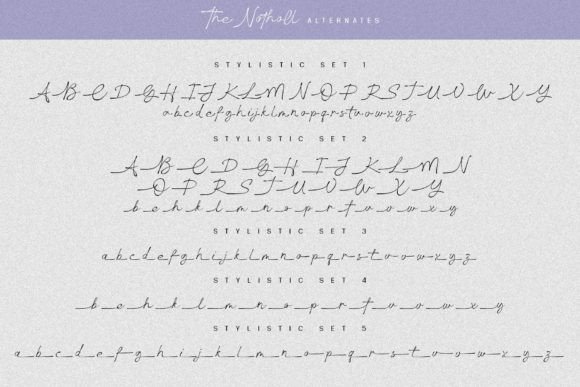 The Notholl ALTERNATES
STYLISTIC SET 1
A B C D G H I J K L M N O P R S T U V W X Y
a b c d e f g h i j k l m n o p q r s t u v w x y z
STYLISTIC SET 2
A B C D G H I J K L M N
O P R S T U V W X Y
b e h k l m n o p r t u v w x y
STYLISTIC SET 3
a b c d e f g h i j k l m n o p q r s t u v w x y z
STYLISTIC SET 4
b e h k l m n o p r t u v w x y
STYLISTIC SET 5
a b c d e f g h i j k l m n o p q r s t u v w x y z